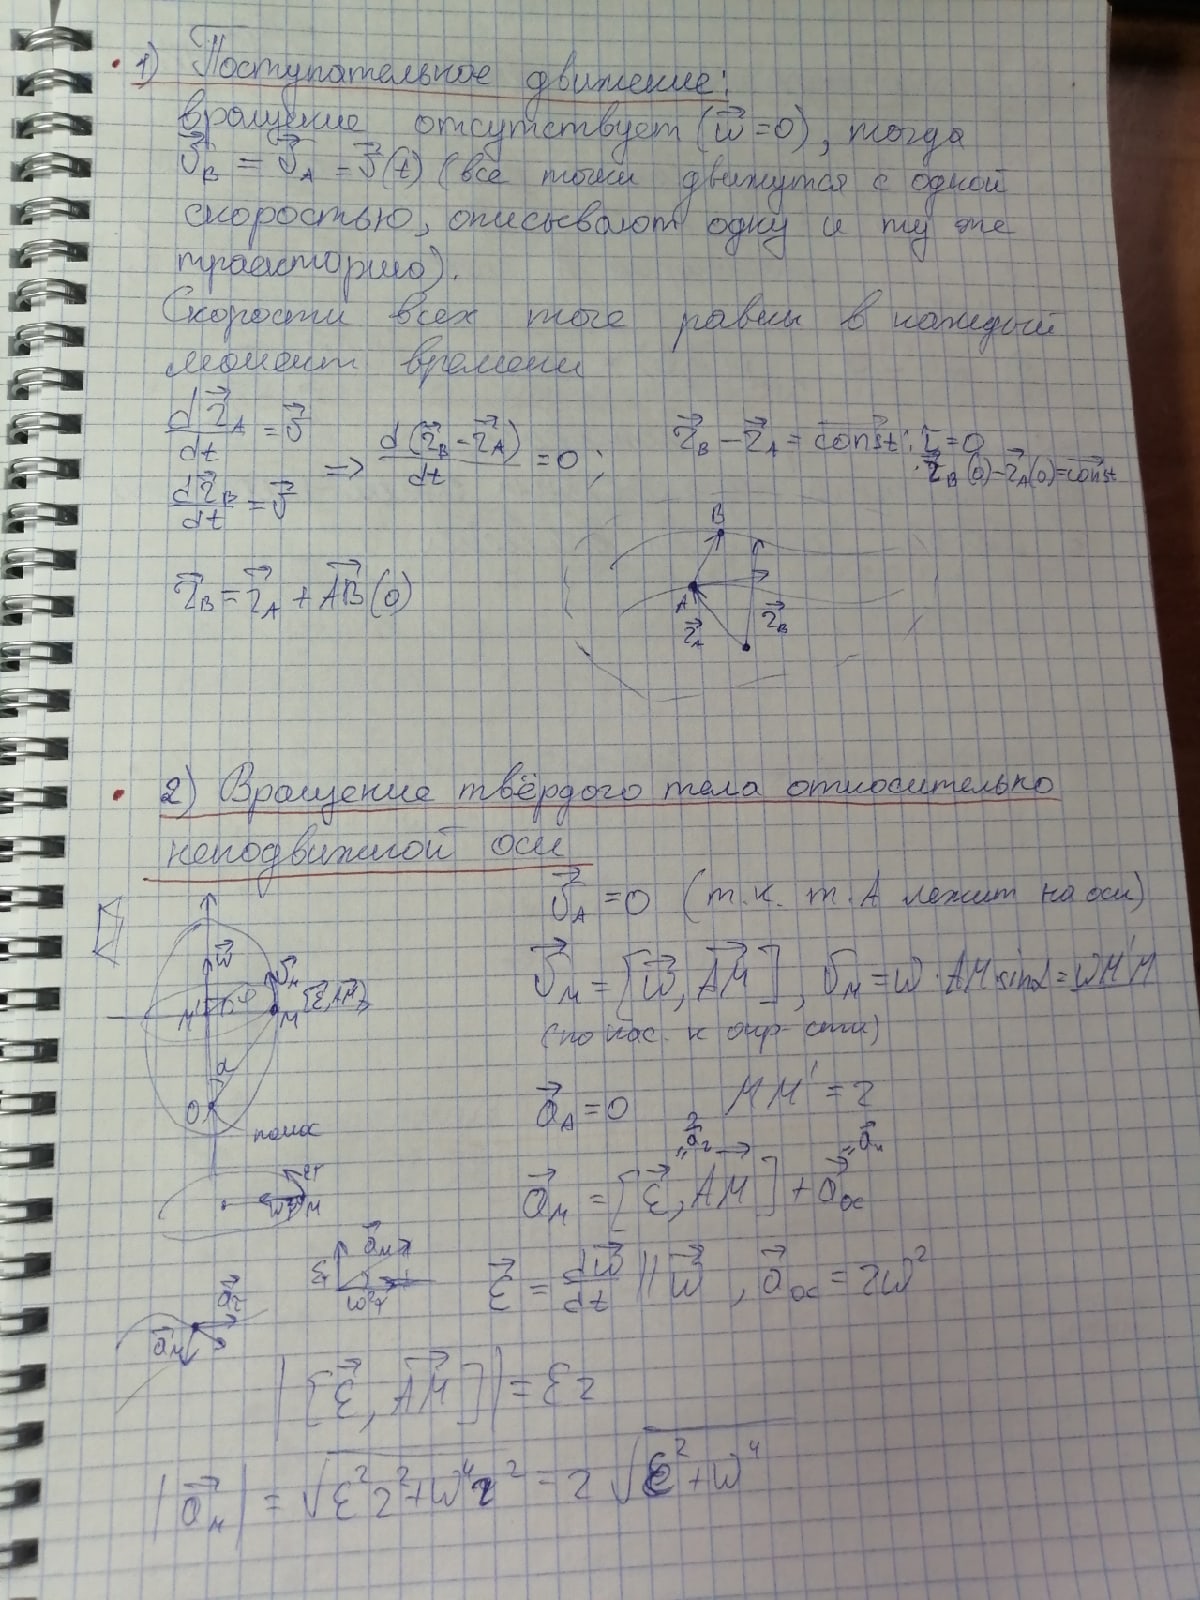 1) Поступательное движение:
вращение отсутствует (w⃗ = 0), тогда
v⃗_B = v⃗_A = v⃗(t) (все точки движутся с одной
скоростью, описывают одну и ту же
траекторию).
Скорости всех точе равны в каждый
момент времени
dr⃗_A/dt = v⃗
dr⃗_B/dt = v⃗
=> d(r⃗_B - r⃗_A)/dt = 0;
r⃗_B - r⃗_A = const;
r⃗_B(0) - r⃗_A(0) = const
r⃗_B = r⃗_A + AB⃗(0)
B
A
r⃗_A
r⃗_B
2) Вращение твёрдого тела относительно
неподвижной оси
v⃗_A = 0 (т.к. т. A лежит на оси)
v⃗_M = [w⃗, AM⃗], v_M = w · AM sinα = wM'M
(по кас. к окр-сти)
a⃗_A = 0 MM' = r
a⃗_M = [ε⃗, AM⃗] + a⃗_oc
a⃗_τ
a⃗_n
ε⃗ = dw⃗/dt || w⃗, a⃗_oc = rw²
w⃗
v⃗_M
[ε⃗, AM⃗]
M
φ
M
α
O
полюс
ετ
w²r M
ετ
a⃗_M
w²r
a⃗_τ
a⃗_M
|[ε⃗, AM⃗]| = εr
|a⃗_M| = √(ε²r² + w⁴r²) = r√(ε² + w⁴)